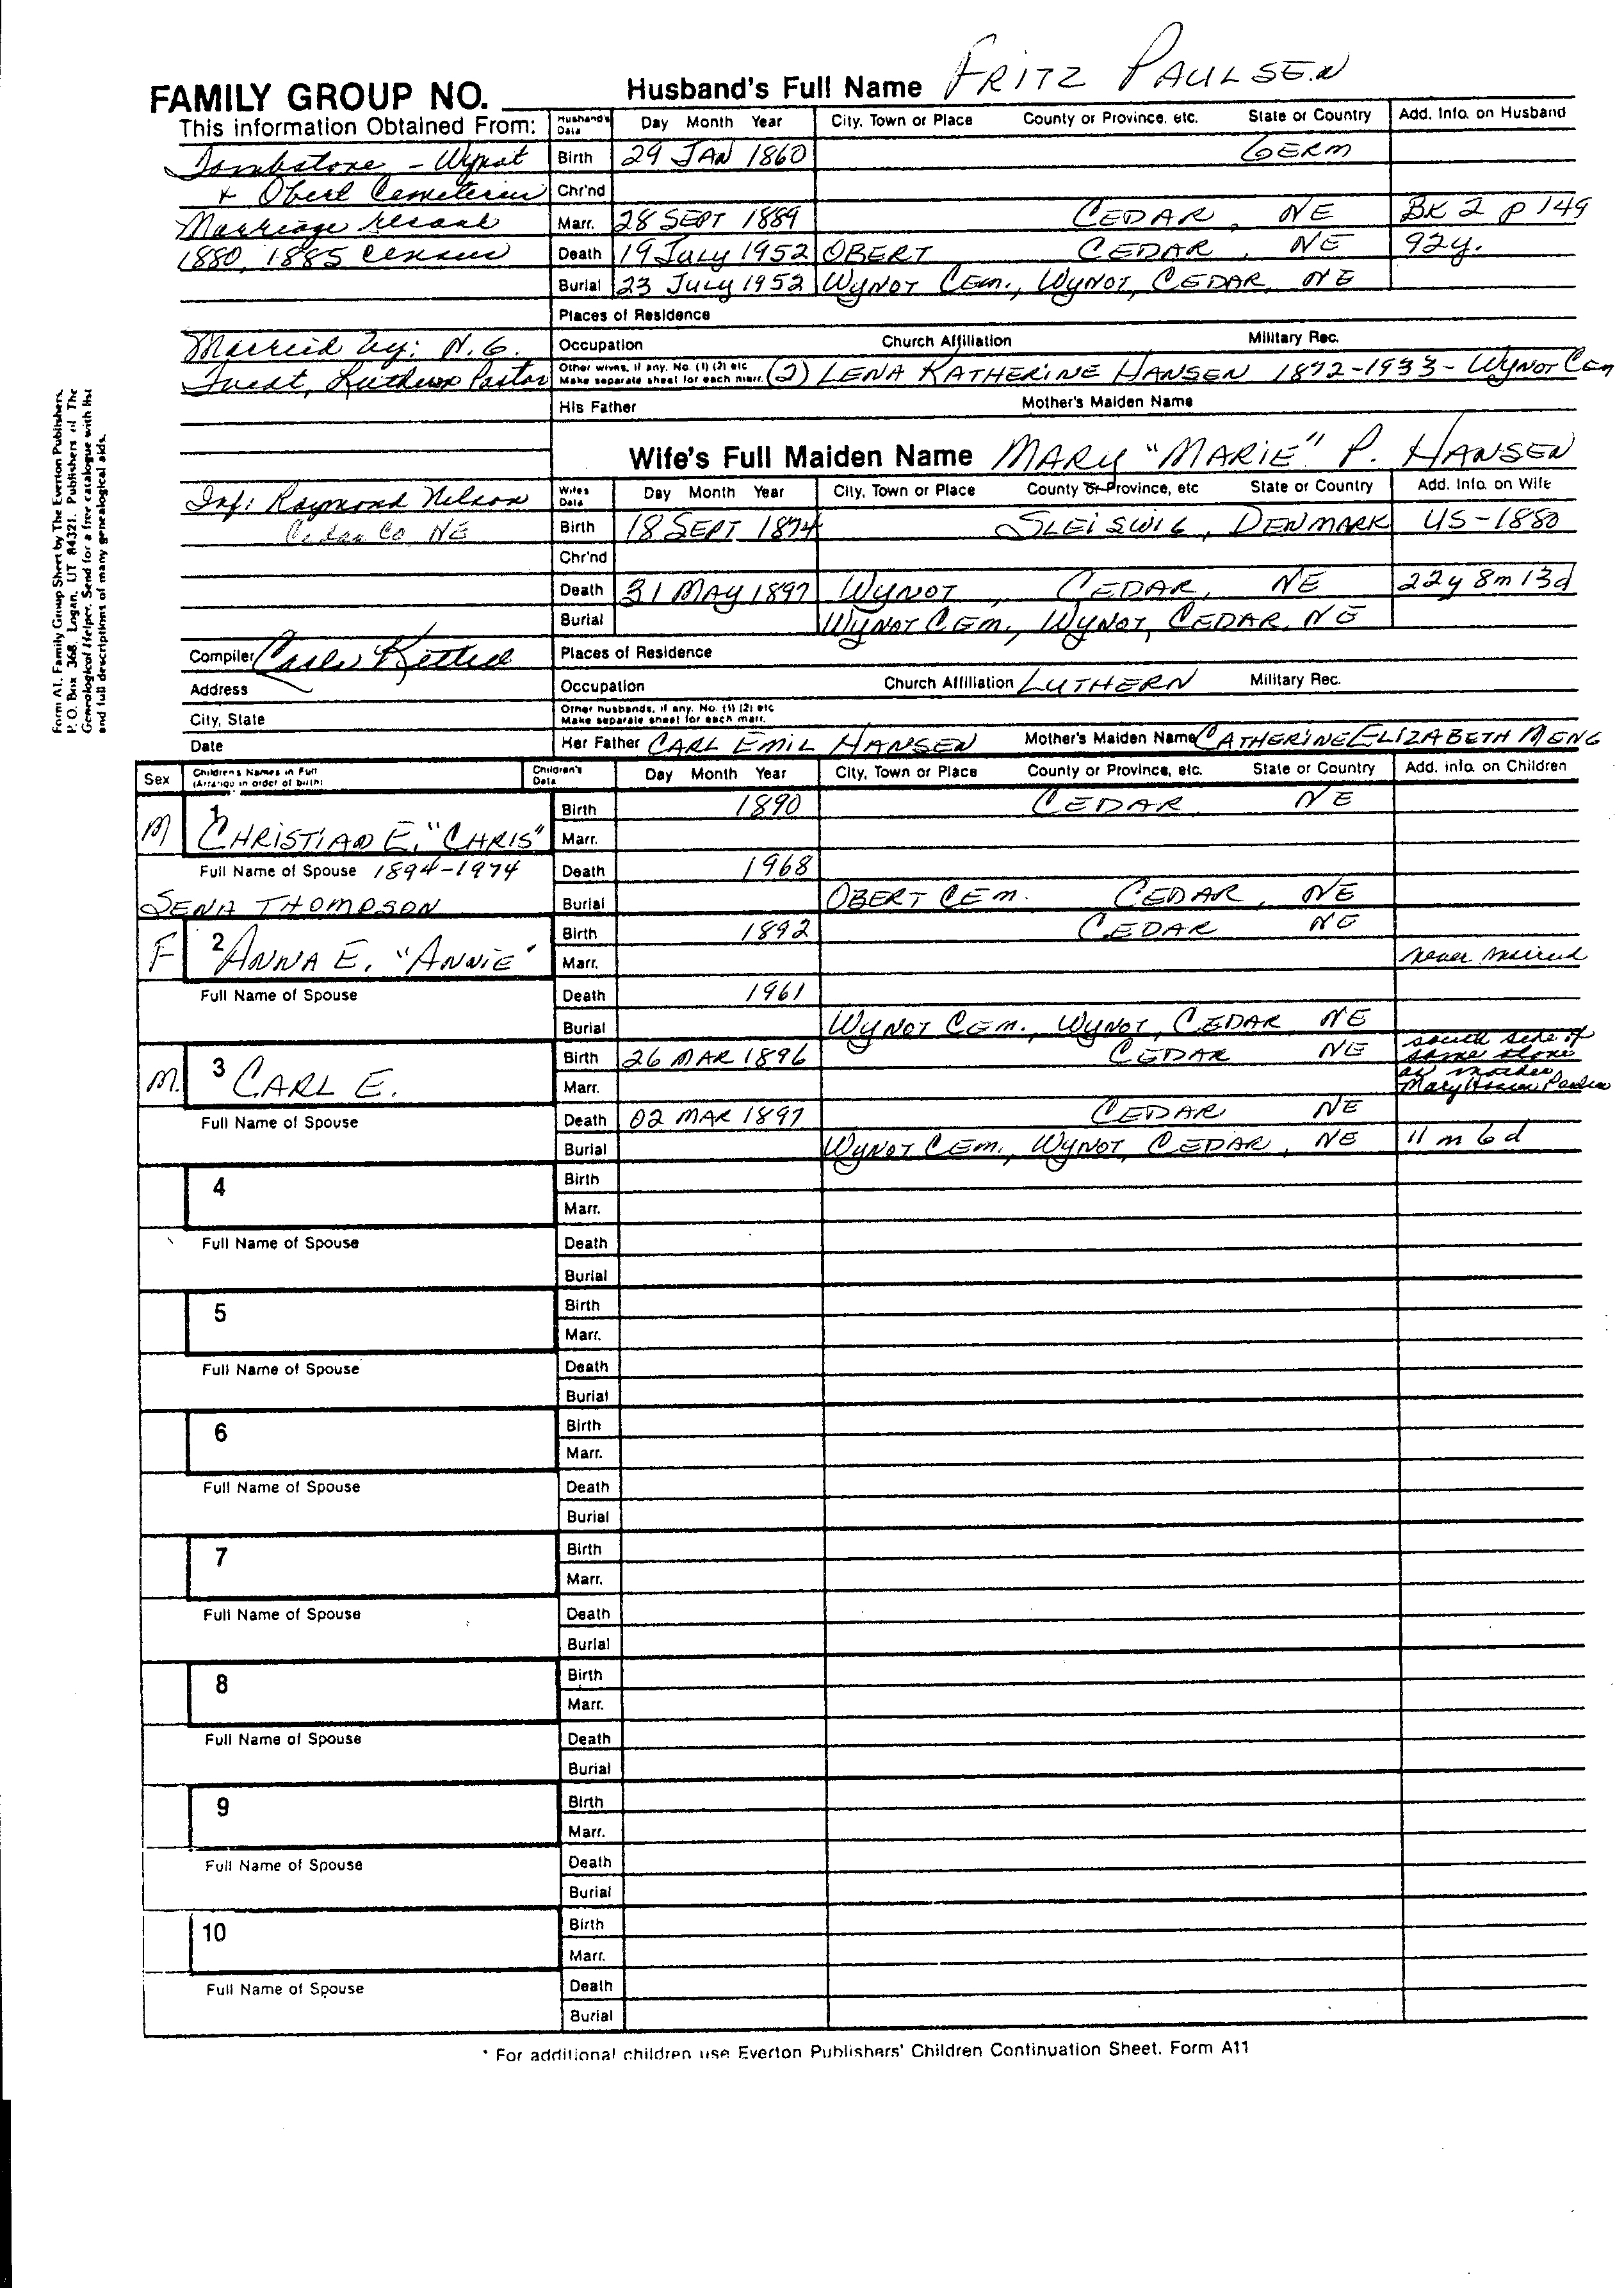 FAMILY GROUP NO.
Husband's Full Name FRITZ PAULSEN
This information Obtained From:
Husband's Data Day Month Year City, Town or Place County or Province, etc. State or Country Add. Info. on Husband
Tombstone - Wynot
Birth 29 JAN 1860 GERM
+ Obert Cemeteries
Chr'nd
Marriage record
Marr. 28 SEPT 1889 CEDAR, NE BK 2 P 149
1880, 1885 census
Death 19 July 1952 OBERT CEDAR, NE 92y.
Burial 23 July 1952 WYNOT CEM., WYNOT, CEDAR NE
Places of Residence
Married by: N. G.
Occupation Church Affiliation Military Rec.
Lutheran Pastor
Other wives, if any. No. (1) (2) etc
Make separate sheet for each marr. (2) LENA KATHERINE HANSEN 1872-1933 - WYNOT CEM
His Father Mother's Maiden Name
Wife's Full Maiden Name MARY "MARIE" P. HANSEN
Wife's Data Day Month Year City, Town or Place County or Province, etc State or Country Add. Info. on Wife
Inf: Raymond Nelson
Cedar Co NE
Birth 18 SEPT 1874 SLEISWIG, DENMARK US-1880
Chr'nd
Death 31 MAY 1897 WYNOT, CEDAR, NE 22y 8m 13d
Burial WYNOT CEM., WYNOT, CEDAR, NE
Compiler
Places of Residence
Address
Occupation Church Affiliation LUTHERN Military Rec.
City, State
Other husbands, if any. No. (1) (2) etc
Make separate sheet for each marr.
Date
Her Father CARL EMIL HANSEN Mother's Maiden Name CATHERINE ELIZABETH MENG
Form A1, Family Group Sheet by The Everton Publishers,
P. O. Box 368, Logan, UT 84321. Publishers of The
Genealogical Helper. Send for a free catalogue with list
and full descriptions of many genealogical aids.
Sex Children's Names in Full (Arrange in order of birth) Children's Data Day Month Year City, Town or Place County or Province, etc. State or Country Add. info. on Children
M 1 CHRISTIAN E. "CHRIS"
Birth 1890 CEDAR NE
Marr.
Full Name of Spouse 1894-1974
Death 1968
SENA THOMPSON
Burial OBERT CEM. CEDAR, NE
F 2 ANNA E. "ANNIE"
Birth 1892 CEDAR NE
Marr. never married
Full Name of Spouse
Death 1961
Burial WYNOT CEM., WYNOT, CEDAR NE
M. 3 CARL E.
Birth 26 MAR 1896 CEDAR NE
south side of
same stone
as mother
Mary Hansen Paulsen
Marr.
Full Name of Spouse
Death 02 MAR 1897 CEDAR NE
Burial WYNOT CEM., WYNOT, CEDAR, NE 11 m 6 d
4
Birth
Marr.
Full Name of Spouse
Death
Burial
5
Birth
Marr.
Full Name of Spouse
Death
Burial
6
Birth
Marr.
Full Name of Spouse
Death
Burial
7
Birth
Marr.
Full Name of Spouse
Death
Burial
8
Birth
Marr.
Full Name of Spouse
Death
Burial
9
Birth
Marr.
Full Name of Spouse
Death
Burial
10
Birth
Marr.
Full Name of Spouse
Death
Burial
* For additional children use Everton Publishers' Children Continuation Sheet. Form A11